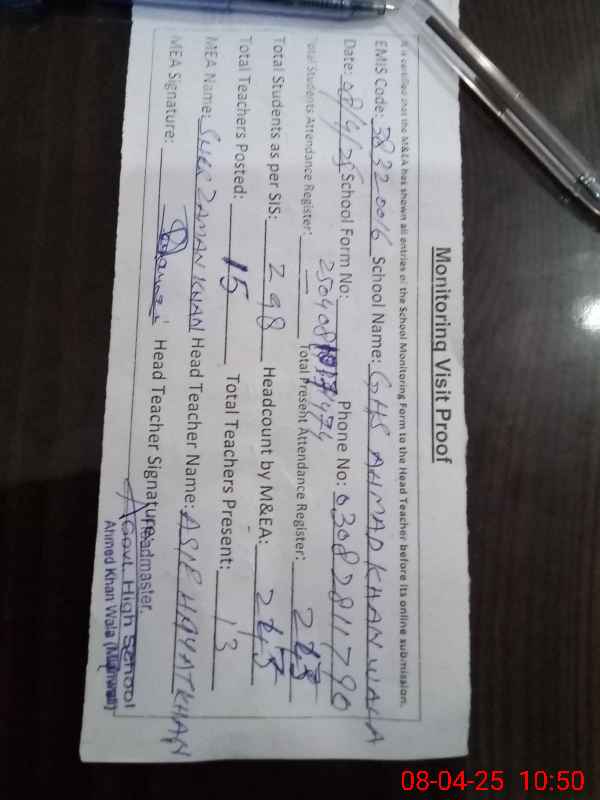 Monitoring Visit Proof
It is certified that the M&EA has shown all entries of the School Monitoring Form to the Head Teacher before its online submission.
EMIS Code: 38320016 School Name: GHS AHMAD KHAN WALA
Date: 08/4/25 School Form No: 250408 Phone No: 03082811790
Total Students Attendance Register: — Total Present Attendance Register:
Total Students as per SIS: 298 Headcount by M&EA:
Total Teachers Posted: 15 Total Teachers Present: 13
MEA Name: ZAMAN KHAN Head Teacher Name: ASIF HAYAT KHAN
MEA Signature: Head Teacher Signature:
Headmaster,
Govt. High School
Ahmed Khan Wala (Mianwali)
08-04-25 10:50